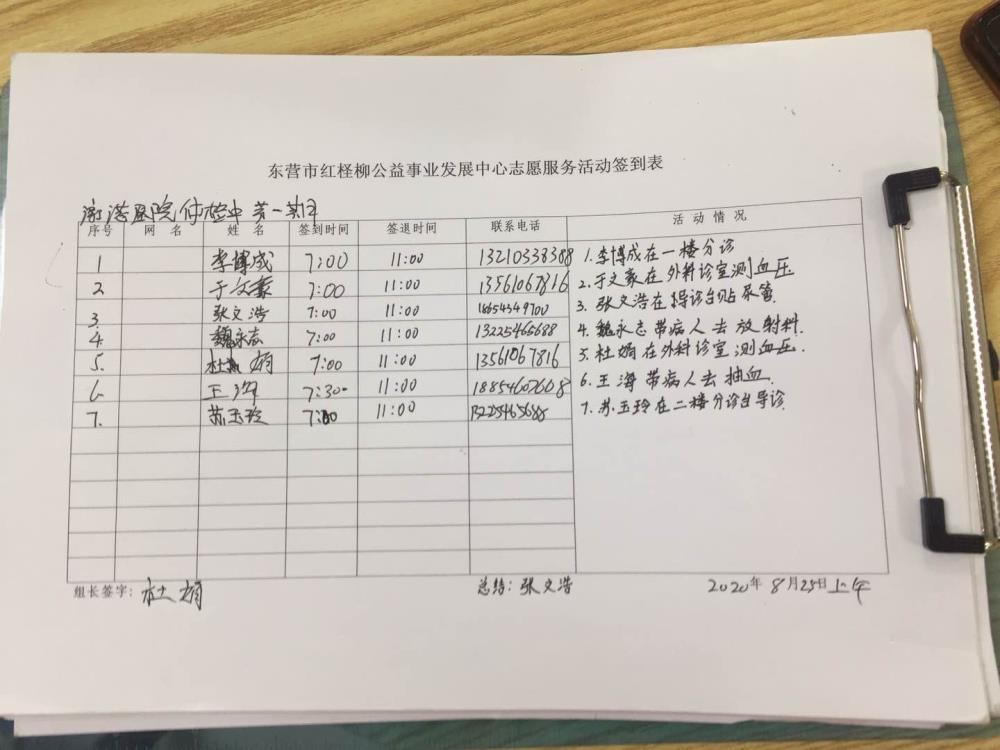 东营市红柽柳公益事业发展中心志愿服务活动签到表
医院体检中 第一期
序号 网名 姓名 签到时间 签退时间 联系电话 活动情况
1 李博成 7:00 11:00 13210338388
2 于文豪 7:00 11:00 13561067816
3. 张文浩 7:00 11:00 18654549700
4 魏永志 7:00 11:00 13225465688
5. 杜娟 7:00 11:00 13561067816
6. 王海 7:30 11:00 18854607608
7. 苏玉玲 7:00 11:00 13225465688
1.李博成在一楼分诊
2.于文豪在外科诊室测血压
3.张文浩在导诊台贴尿管
4.魏永志带病人去放射料.
5.杜娟在外科诊室测血压.
6.王海带病人去抽血.
7.苏玉玲在二楼分诊台导诊.
组长签字: 杜娟 总结: 张文浩 2020年8月25日上午